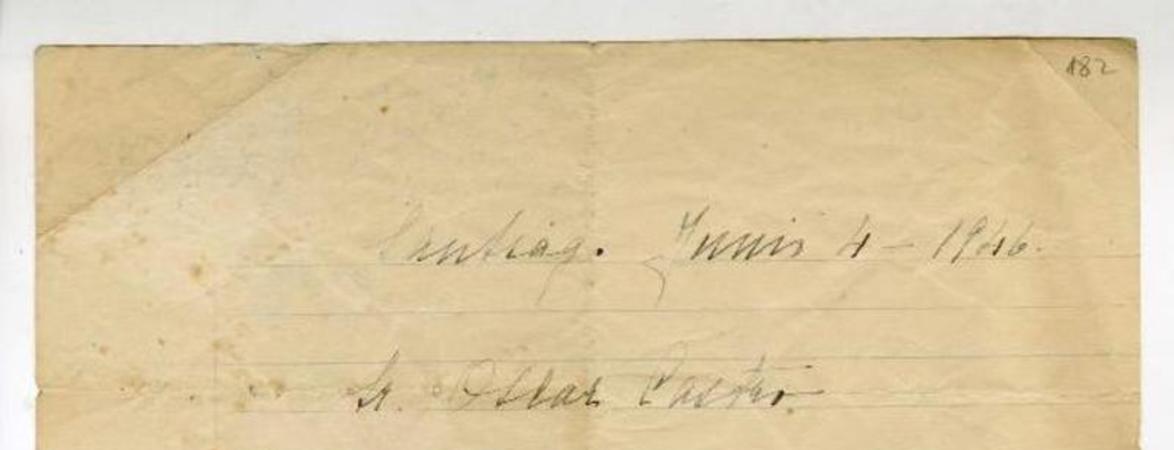 182
Santiago. Junio 4 - 1946.
Sr. Oscar Castro